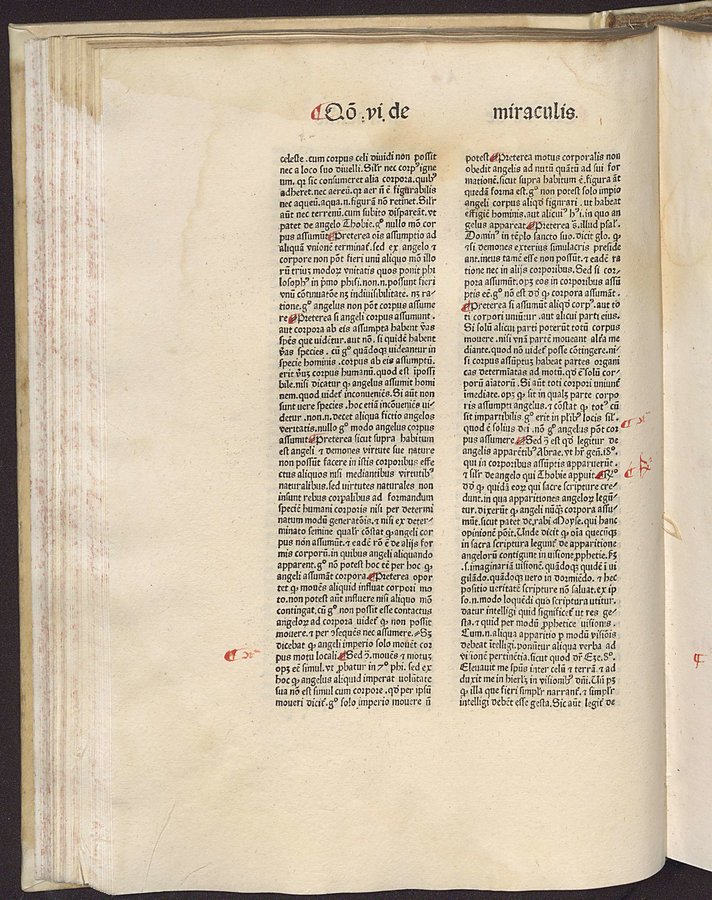 ¶Qō .vi. de miraculis.
celeste. cum corpus celi diuidi non possit
nec a loco suo diuelli. Silr nec corp⁹ igne
um. q2 sic consumeret alia corpora. quib⁹
adheret. nec aereū. q2 aer nō ē figurabilis
nec aqueū. aqua.n. figurā nō retinet. Silr
aūt nec terrenū. cum subito dispareāt. vt
patet de angelo Thobie. g° nullo mō cor
pus assumūt ¶Preterea oīs assumptio ad
aliquā vnionē terminat̄. sed ex angelo ⁊
corpore non pōt fieri vnū aliquo mō illo
rū triuꝫ modoꝝ vnitatis quos ponit phi
losoph⁹ in p̄mo phisi. non .n. possunt fieri
vnū cōtinuatōe nꝫ indiuisibilitate. nꝫ ra-
tione. g° angelus non pōt corpus assume
re ¶Preterea si angeli corpus assumunt.
aut corpora ab eis assumpta habent v̄as
sp̄es que vidētur. aut nō. si quidē habent
v̄as species. cū g° quādoqꝫ videantur in
specie hominis. corpus ab eis assumptū.
erit veꝝ corpus humanū. quod est ipossi
bile. nisi dicatur ꝙ angelus assumit homi
nem. quod videt̄ inconueniēs. Si aūt non
sunt vere species. hoc etiā incōueniēs vi-
detur. non .n. decet aliqua fictio angelos
veritatis. nullo g° modo angelus corpus
assumit ¶Preterea sicut supra habitum
est angeli ⁊ demones virtute sue nature
non possūt facere in istis corporibus effe
ctus aliquos nisi mediantibus virtutib⁹
naturalibus. sed virtutes naturales non
insunt rebus corꝑalibus ad formandum
speciē humani corporis nisi per determi
natum modū generatōis. ⁊ nisi ex deter-
minato semine qualr̄ cōstat ꝙ angeli cor
pus non assumūt. ⁊ eadē rō ē de alijs for
mis corporū. in quibus angeli aliquando
apparent. g° nō potest hoc eē per hoc ꝙ
angeli assumāt corpora ¶Preterea opor
tet ꝙ mouēs aliquid influat corpori mo
to. non potest aūt influere nisi aliquo mō
contingat. cū g° non possit esse contactus
angeloꝝ ad corpora videt̄ ꝙ non possit
mouere. ⁊ per ꝯsequēs nec assumere. Sꝫ
dicebat ꝙ angeli imperio solo mouēt cor
pus motu locali ¶Sed ꝯ. mouēs ⁊ motuꝫ
opꝫ eē simul. vt ꝓbatur in 7° phi. sed ex
hoc ꝙ angelus aliquid imperat volūtate
sua nō est simul cum corpore. qd̄ per ipsū
moueri dicit̄. g° solo imperio mouere nō
potest ¶Preterea motus corporalis non
obedit angelis ad nutū quātū ad sui for
mationē. sicut supra habitum ē. figura āt
quedā forma est. g° non potest solo impio
angeli corpus aliqd̄ figurari. vt habeat
effigiē hominis. aut alicui⁹ hᵢ⁹. in quo an
gelus appareat ¶Preterea sꝑ. illud psal̄.
Domin⁹ in tēplo sancto suo. dicit glo. ꝙ
⁊ si demones exterius simulacris preside
ant. intus tamē esse non possūt. ⁊ eadē ra
tione nec in alijs corporibus. Sed si cor-
pora assumūt. opꝫ eos in corporibus assū
ptis eē. g° nō est dd̄ ꝙ corpora assumāt.
¶Preterea si assumūt aliqd̄ corp⁹. aut to
ti corpori uniūtur. aut alicui parti eius.
Si solū alicui parti poterūt totū corpus
mouere. nisi vnā partē moueant alia me
diante. quod nō videt̄ posse cōtingere. ni-
si corpus assūptuꝫ habeat partes organi
cas determīatas ad motū. qd̄ ē solū cor-
porū aīatorū. Si aūt toti corpori uniunt̄
imediate. opꝫ ꝙ sit in qualꝫ parte corpo
ris assumpti angelus. ⁊ cōstat ꝙ tot⁹ cū
sit impartibilis g° erit in plib⁹ locis sil̄.
quod ē solius dei. nō g° angelus pōt cor
pus assumere ¶Sed ꝯ est qd̄ legitur de
angelis apparētib⁹ Abrae. vt hr̄ gen. i8°.
qui in corporibus assūptis apparuerūt.
⁊ silr̄ de angelo qui Thobie appuit ¶R°
dd̄ ꝙ quidā eoꝝ qui sacre scripture cre-
dunt. in qua apparitiones angeloꝝ legū-
tur. dixerūt ꝙ angeli nūqꝫ corpora assu-
mūt. sicut patet de .rabi Moyse. qui hanc
opinionē pōit. Unde dicit ꝙ oīa quecūqꝫ
in sacra scriptura legunt̄ de apparitione
angelorū contigunt in uisione ꝓphetie. hꝫ
.s. imaginariā uisionē. quādoqꝫ quidē ī ui
gilādo. quādoqꝫ vero in dormiēdo. ⁊ hec
positio ueritatē scripture nō saluat. ex ip
so .n. modo loquēdi quo scriptura utitur.
datur intelligi quid significet̄ ut res ge-
sta. ⁊ quid per modū ꝓphetice uisionis.
Cum .n. aliqua apparitio ꝑ modū visiōis
debeat ītelligi. ponūtur aliqua verba ad
visionē pertinētia. sicut quod dr̄ Eze. 8°.
Eleuauit me sp̄us inter celū ⁊ terrā. ⁊ ad
duxit me in hierlꝫ in visionib⁹ dn̄i. Un̄ pꝫ
ꝙ illa que fieri simplr̄ narrant̄. ⁊ simplr̄
intelligi debēt esse gesta. Sic aūt legit̄ de